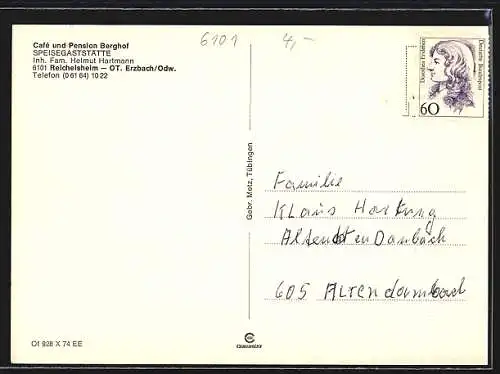 Café und Pension Berghof
SPEISEGASTSTÄTTE
Inh. Fam. Helmut Hartmann
6101 Reichelsheim — OT. Erzbach/Odw.
Telefon (0 61 64) 10 22
6101
4,-
Dorothea Erxleben
Deutsche Bundespost
60
Gebr. Metz, Tübingen
Familie
Klaus Hartung
605 Altendambach
Of 928 X 74 EE